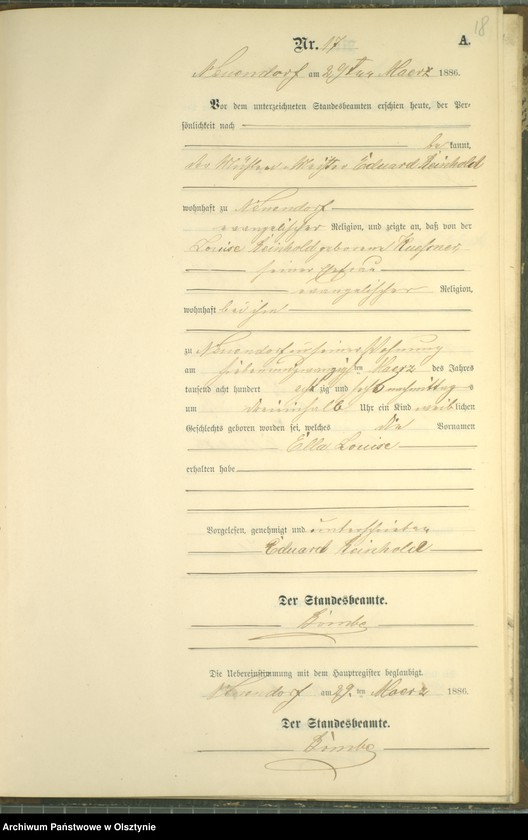 18
Nr. 17 A.
Neuendorf am 29ten Maerz 1886.
Vor dem unterzeichneten Standesbeamten erschien heute, der Per-
sönlichkeit nach
bekannt,
der Eduard Reinhold
wohnhaft zu Neuendorf
evangelischer Religion, und zeigte an, daß von der
Louise Reinhold geborene
seiner Ehefrau
evangelischer Religion,
wohnhaft bei ihm
zu Neuendorf in seiner Wohnung
am siebenundzwanzigsten Maerz des Jahres
tausend acht hundert achtzig und sechs nachmittags
um Uhr ein Kind weiblichen
Geschlechts geboren worden sei, welches die Vornamen
Ella Louise
erhalten habe
Vorgelesen, genehmigt und unterschrieben
Eduard Reinhold
Der Standesbeamte.
Die Uebereinstimmung mit dem Hauptregister beglaubigt.
Neuendorf am 29.ten Maerz 1886.
Der Standesbeamte.
Archiwum Państwowe w Olsztynie